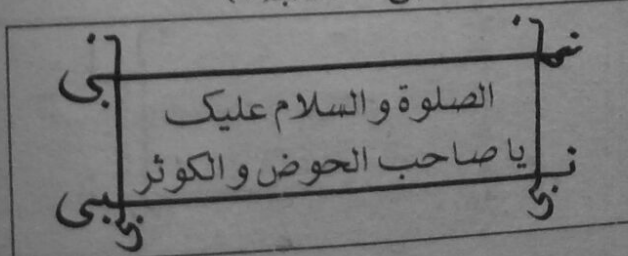 نبی
نبی
الصلوة والسلام عليک
يا صاحب الحوض والکوثر
نبی
نبی